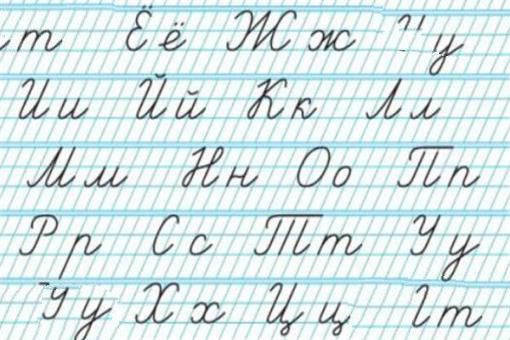 т Ёё Жж у
Ии Йй Кк Лл
Мм Нн Оо Пп
Рр Сс Тт Уу
Уу Хх Цц т